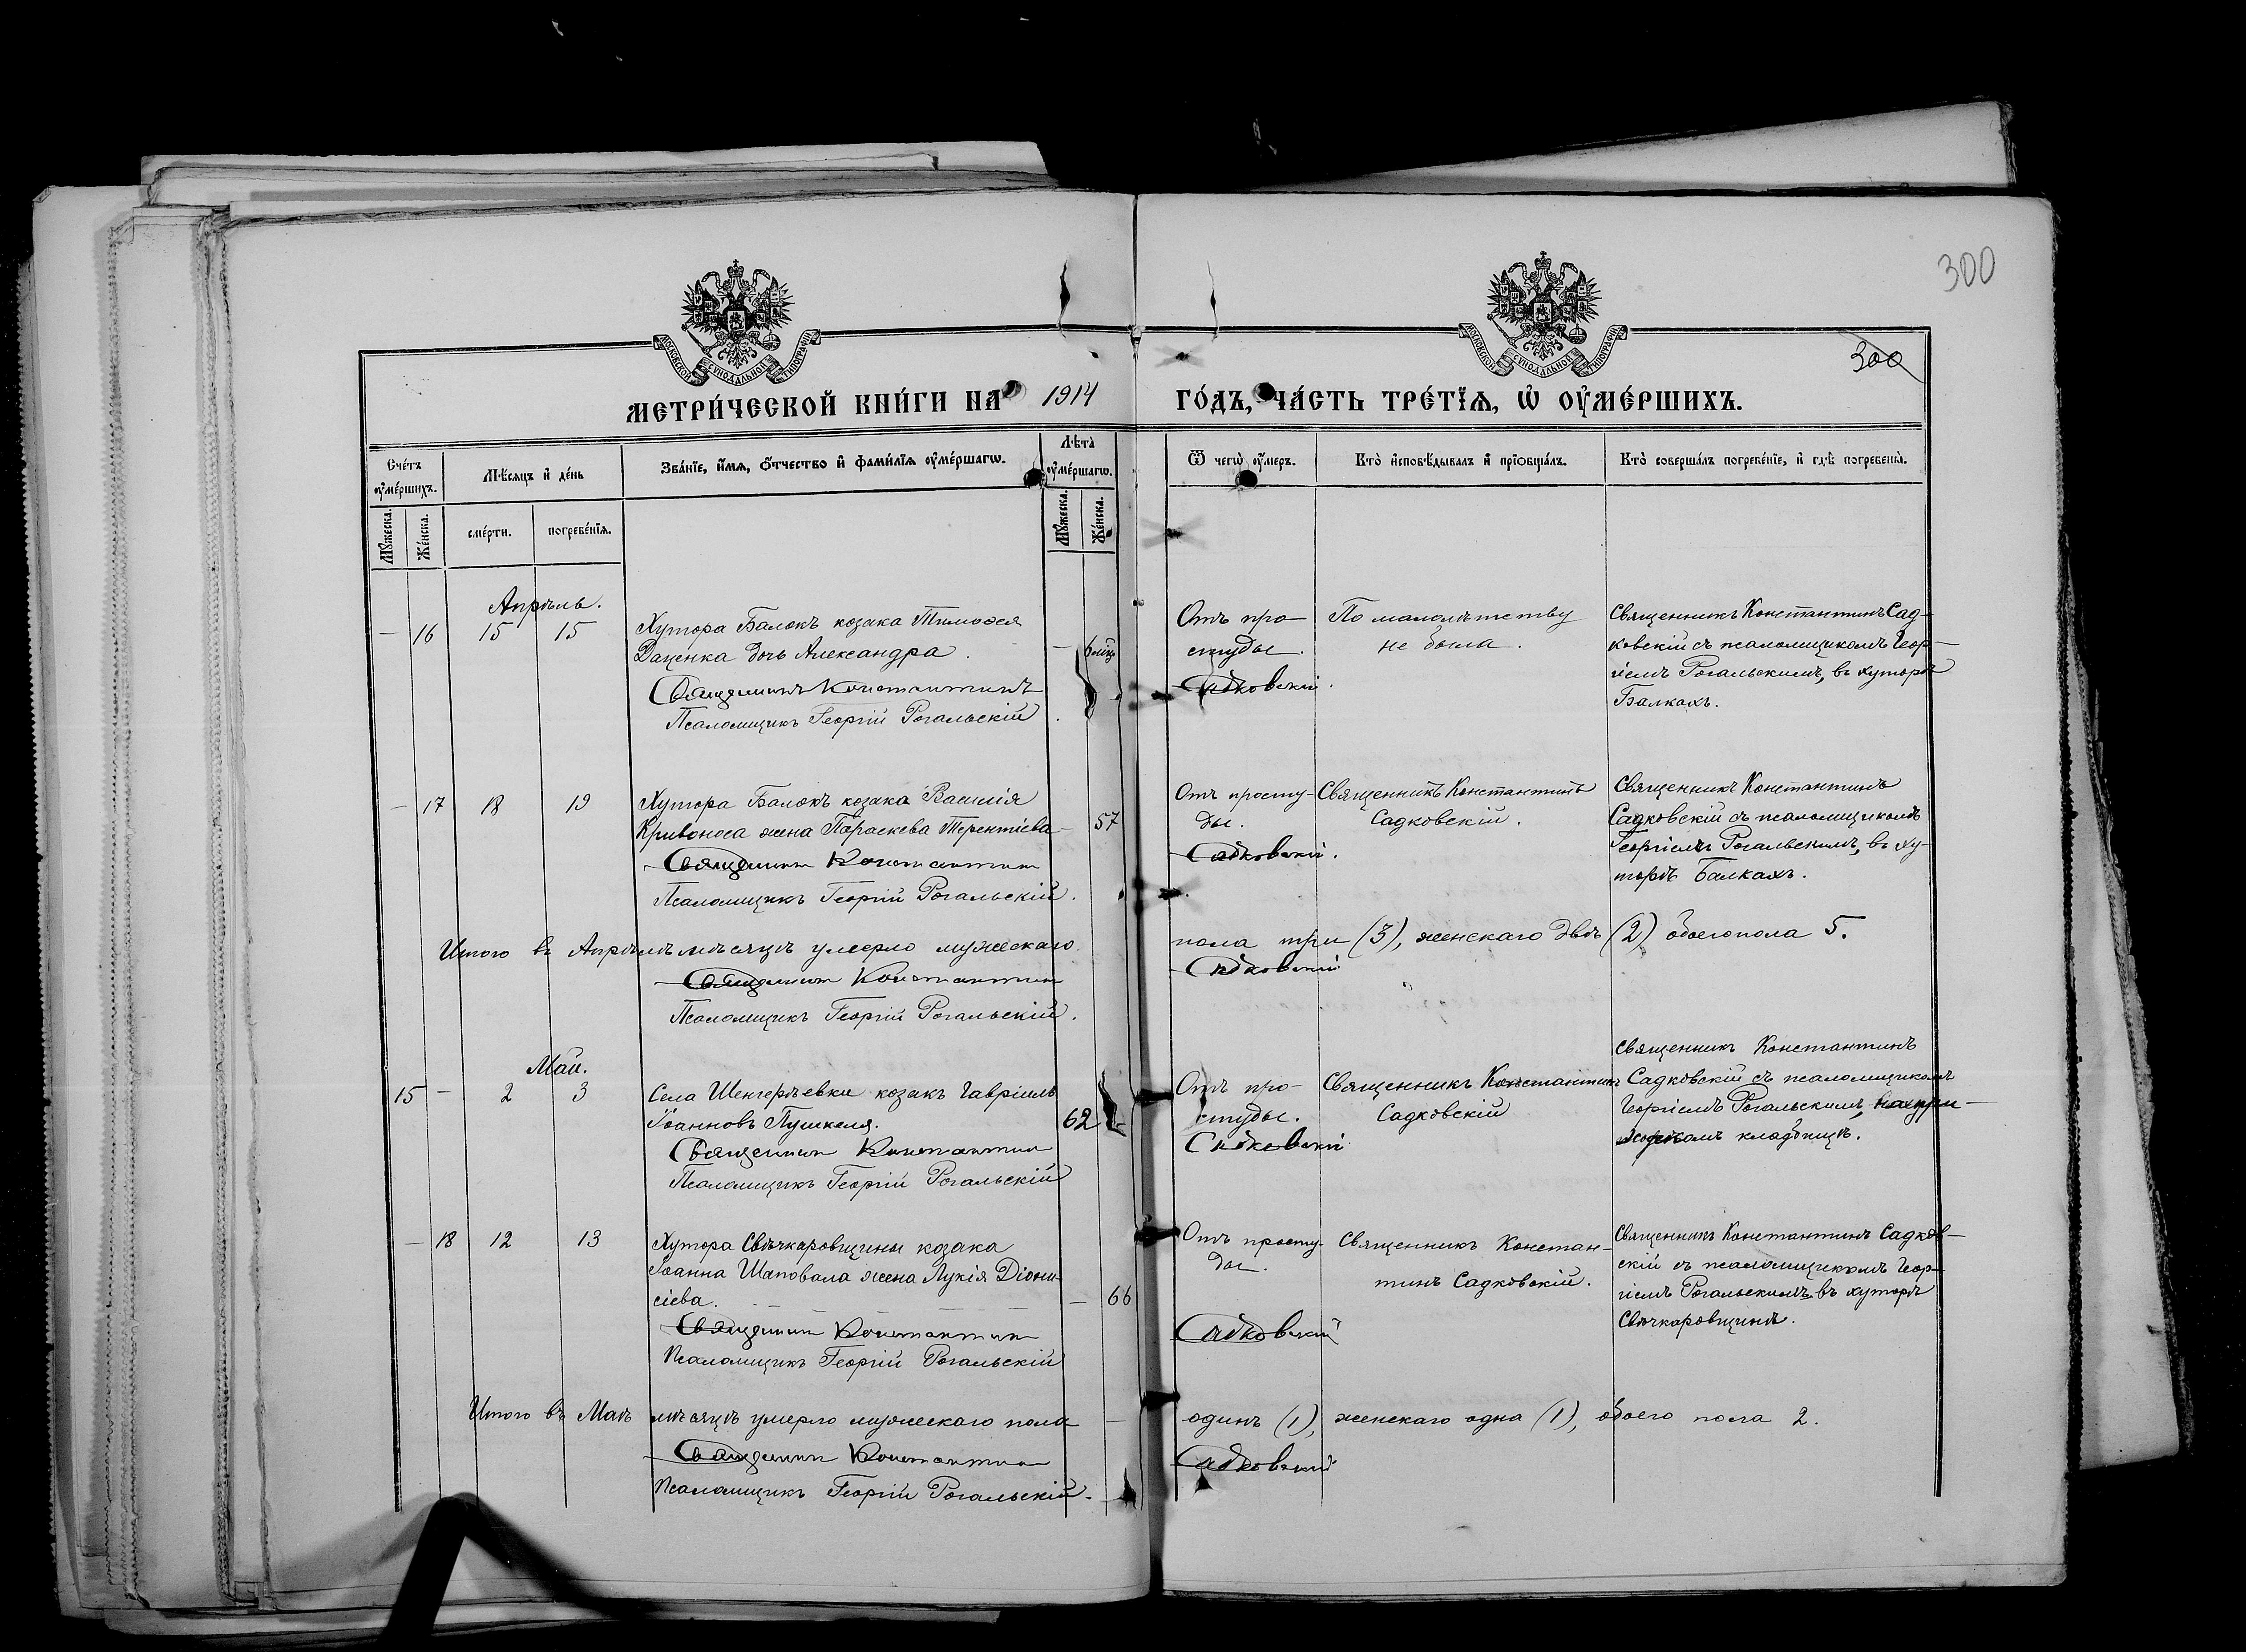 300
300
МОСКОВСКОЙ СѴНОДАЛЬНОЙ ТИПОГРАФІИ
МОСКОВСКОЙ СѴНОДАЛЬНОЙ ТИПОГРАФІИ
МЕТРИ́ЧЕСКОЙ КНИ́ГИ НА 1914 ГО́ДЪ, ЧА́СТЬ ТРЕ́ТЇѦ, Ѡ҆ ОУ҆МЕ́РШИХЪ.
Сче́тъ оу҆ме́ршихъ.
Мѣ́сѧцъ и҆ де́нь
Зва́нїе, и҆́мѧ, ѻ҆́тчество и҆ фами́лїѧ оу҆ме́ршагѡ.
Лѣ́та̀ оу҆ме́ршагѡ.
Ѿ чегѡ̀ оу҆́меръ.
Кто̀ и҆сповѣ́дывалъ и҆ прїѡбща́лъ.
Кто̀ соверша́лъ погребе́нїе, и҆ гдѣ̀ погребены̀.
Мꙋ́жеска.
Же́нска.
сме́рти.
погребе́нїѧ.
Мꙋ́жеска.
Же́нска.
Апрѣль.
— 16 15 15
Хутора Балокъ козака Тимоѳея
Даценка дочь Александра.
— 6 мѣц.
Священникъ Константинъ
Псаломщикъ Георгій Рогальскій.
Отъ про-
студы.
Садковскій.
По малолѣтству
не была.
Священникъ Константинъ Сад-
ковскій съ псаломщикомъ Геор-
гіемъ Рогальскимъ, въ хуторѣ
Балкахъ.
— 17 18 19
Хутора Балокъ козака Василія
Кривоноса жена Параскева Терентіева
— 57
Священникъ Константинъ
Псаломщикъ Георгій Рогальскій.
Отъ просту-
ды.
Садковскій.
Священникъ Константинъ
Садковскій.
Священникъ Константинъ
Садковскій съ псаломщикомъ
Георгіемъ Рогальскимъ, въ ху-
торѣ Балкахъ.
Итого въ Апрѣлѣ мѣсяцѣ умерло мужескаго пола три (3), женскаго двѣ (2) обоего пола 5.
Священникъ Константинъ Садковскій
Псаломщикъ Георгій Рогальскій.
Май.
15 — 2 3
Села Шенгерѣевки козакъ Гавріилъ
Іоанновъ Пушкеля.
62 —
Священникъ Константинъ
Псаломщикъ Георгій Рогальскій
Отъ про-
студы.
Садковскій
Священникъ Константинъ
Садковскій
Священникъ Константинъ
Садковскій съ псаломщикомъ
Георгіемъ Рогальскимъ, на при-
кладбищѣ.
— 18 12 13
Хутора Свѣчкаровщины козака
Іоанна Шаповала жена Лукія Діони-
сіева.
— 66
Священникъ Константинъ
Псаломщикъ Георгій Рогальскій
Отъ просту-
ды.
Садковскій
Священникъ Констан-
тинъ Садковскій.
Священникъ Константинъ Садков-
скій съ псаломщикомъ Геор-
гіемъ Рогальскимъ въ хуторѣ
Свѣчкаровщинѣ.
Итого въ Маѣ мѣсяцѣ умерло мужескаго пола — одинъ (1), женскаго одна (1), обоего пола 2.
Священникъ Константинъ Садковскій
Псаломщикъ Георгій Рогальскій.